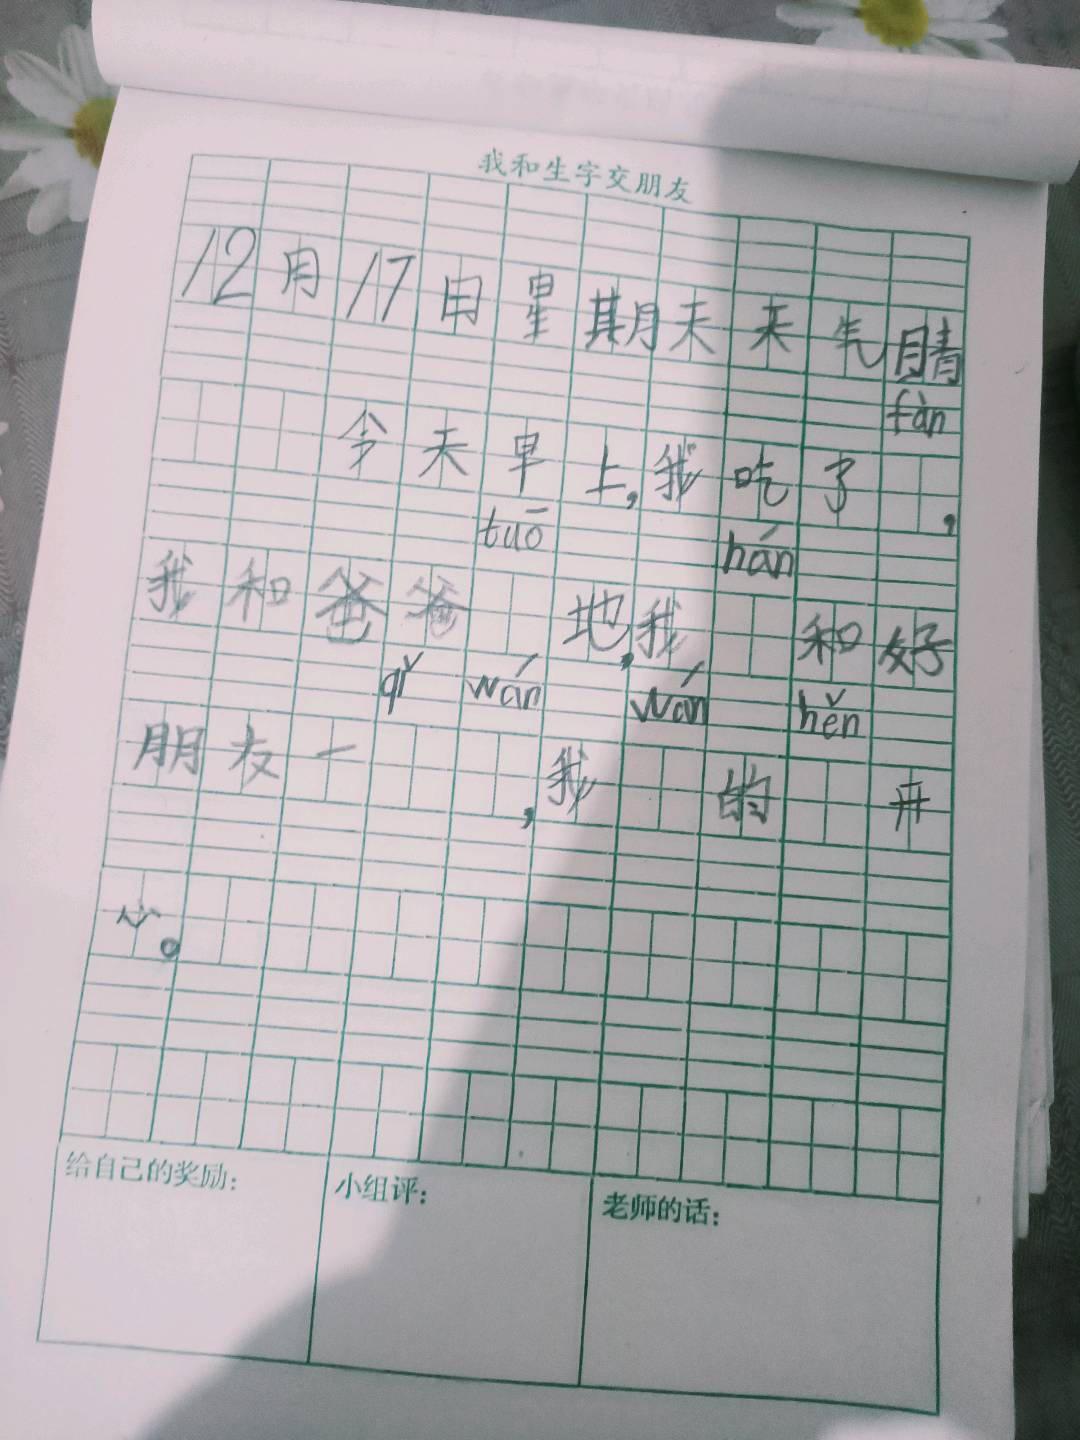 我和生字交朋友
12月17日星期天天气晴
fàn
今天早上,我吃了,
tuō hán
我和爸爸地,我和好
qǐ wán wán hěn
朋友一,我的开
心。
给自己的奖励:
小组评:
老师的话: